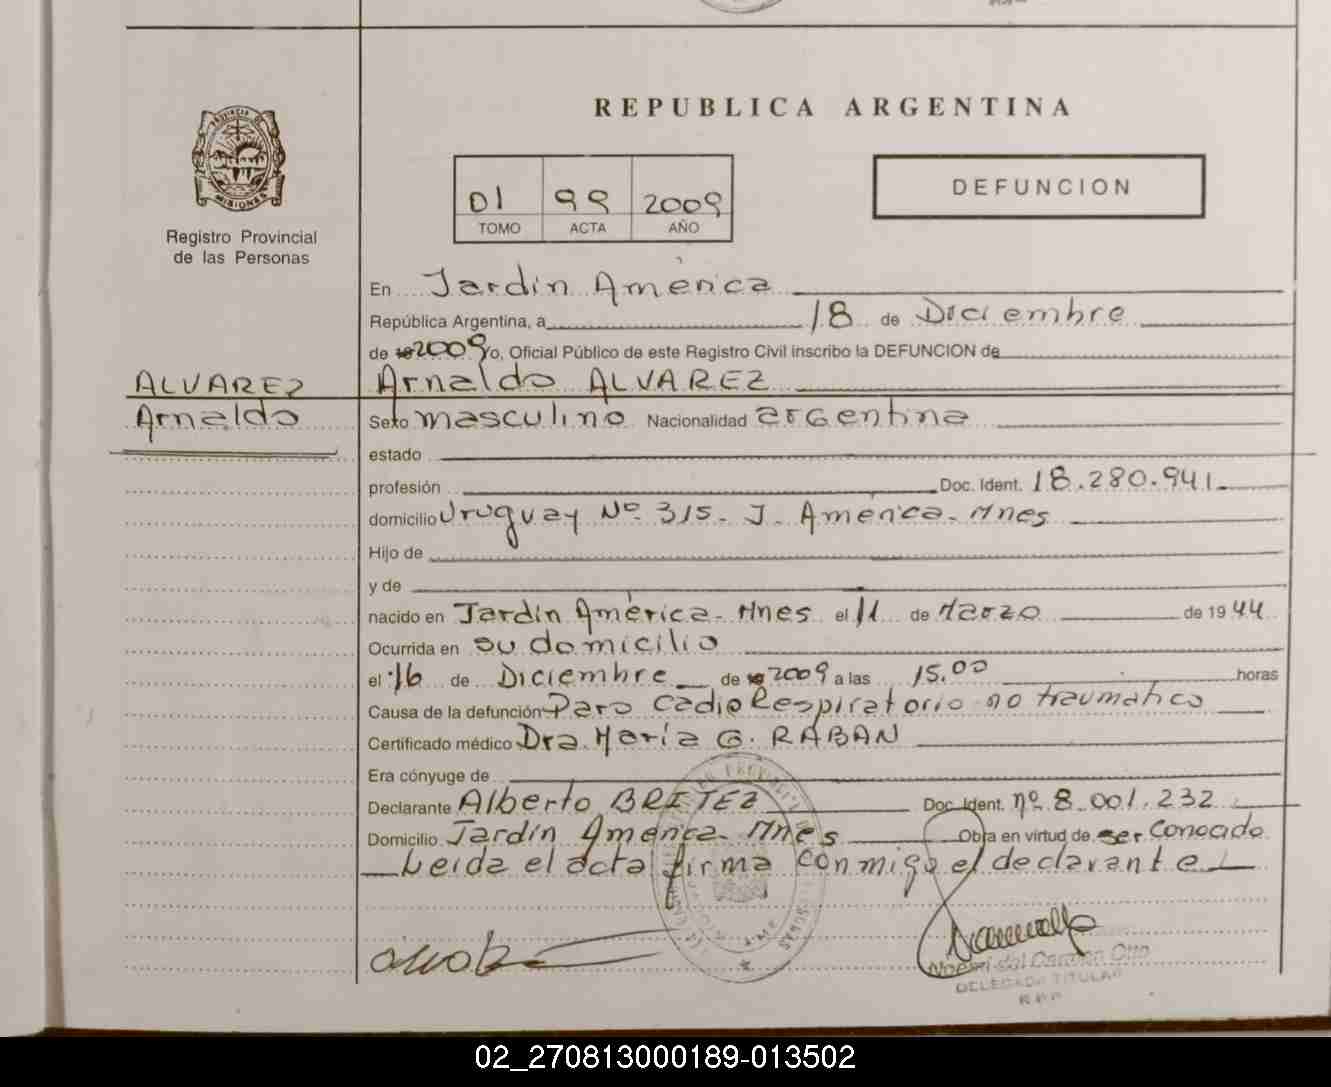 REPUBLICA ARGENTINA
PROVINCIA DE
MISIONES
Registro Provincial
de las Personas
01 99 2009
TOMO ACTA AÑO
DEFUNCION
En Jardín América
República Argentina, a 18 de Diciembre
de 2009 yo, Oficial Público de este Registro Civil inscribo la DEFUNCION de
ALVAREZ Arnaldo ALVAREZ
Arnaldo Sexo masculino Nacionalidad argentina
estado
profesión Doc. Ident. 18.280.941.
domicilio Uruguay Nº 315. J. América. Mnes
Hijo de
y de
nacido en Jardín América. Mnes el 11 de Marzo de 1944
Ocurrida en su domicilio
el 16 de Diciembre de 2009 a las 15.00 horas
Causa de la defunción Paro CadioRespiratorio no traumatico
Certificado médico Dra. María G. RABAN
Era cónyuge de
Declarante Alberto BRITEZ Doc. Ident. nº 8.001.232
Domicilio Jardín América. Mnes Obra en virtud de ser conocido
Leida el acta firma conmigo el declarante
Noemi del Carmen Otto
DELEGADA TITULAR
R.P.P.
02_270813000189-013502